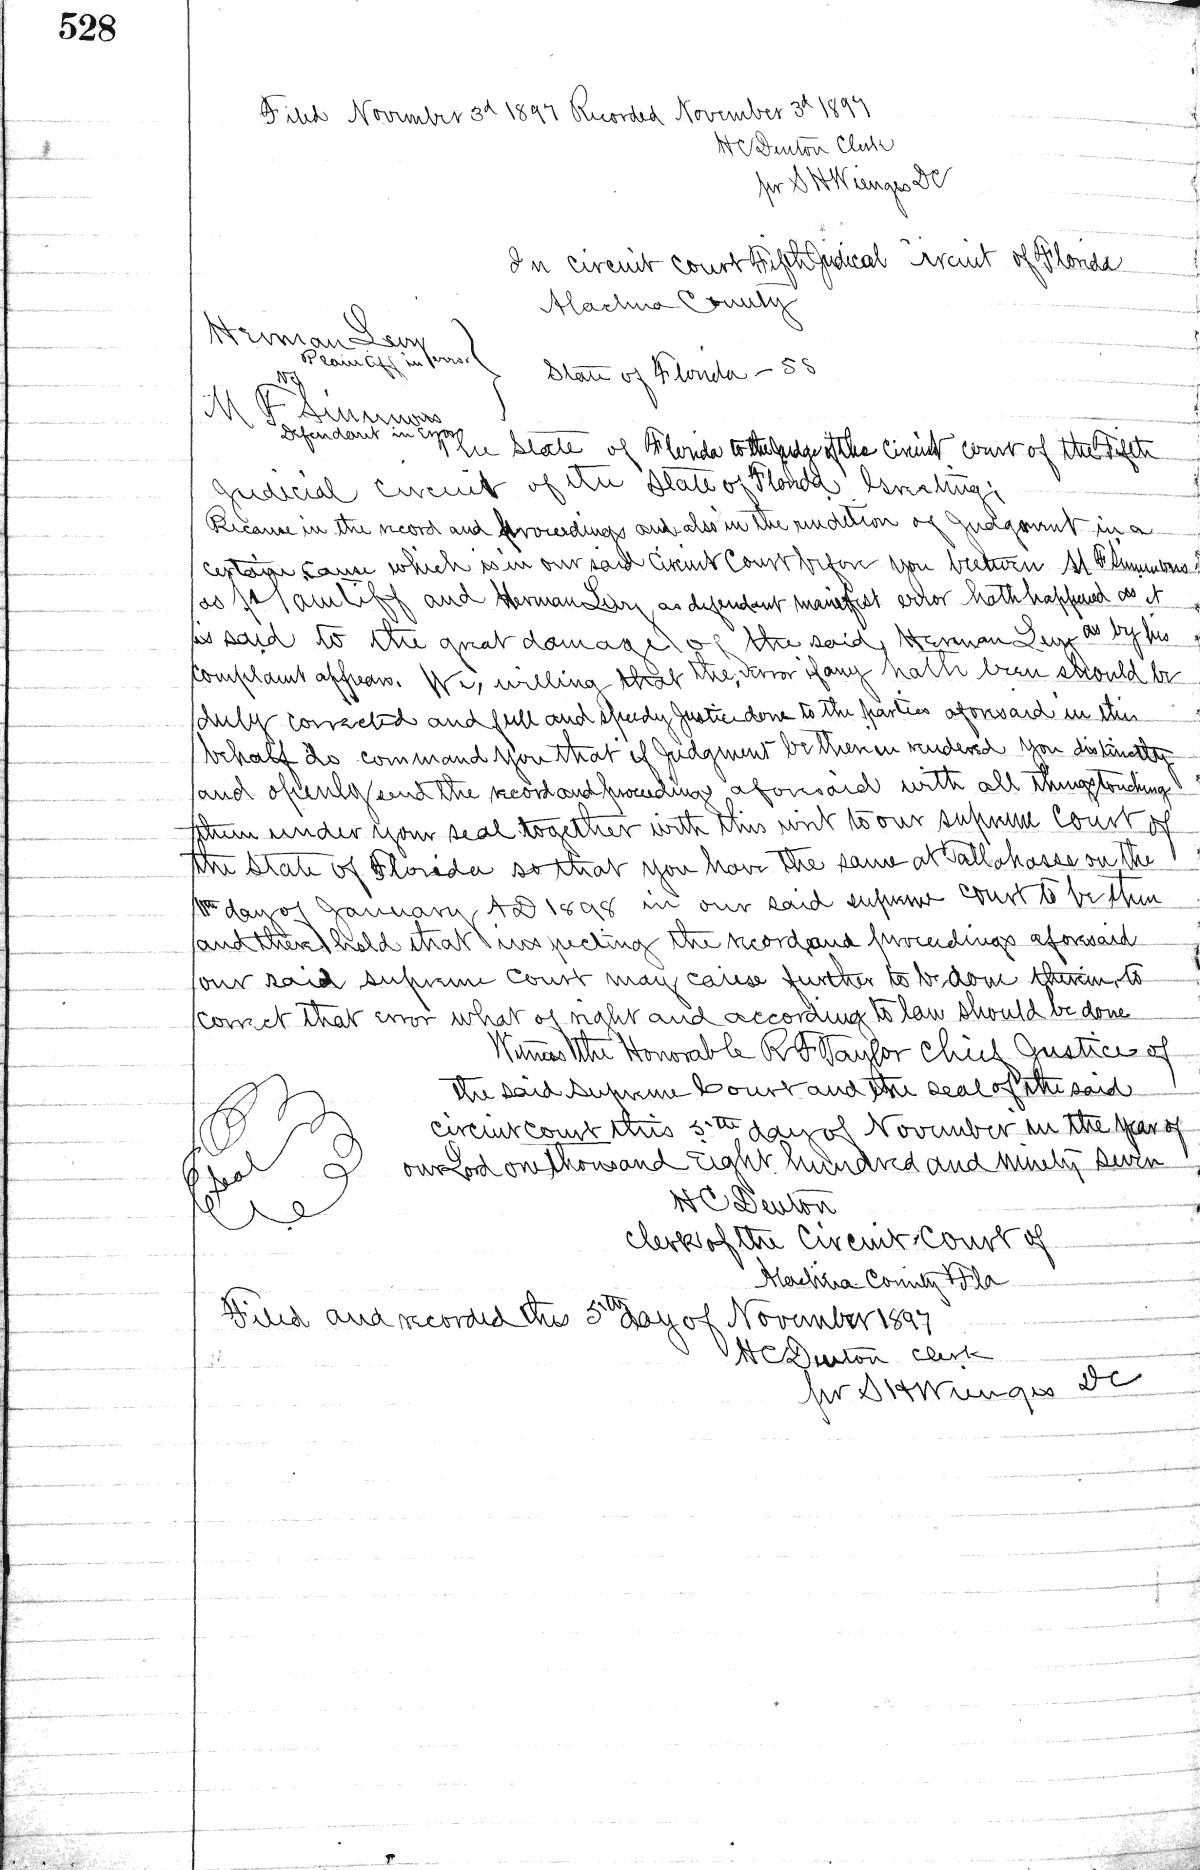 528
Filed November 3d 1897 Recorded November 3d 1897
H C Denton Clerk
per S H Wienges DC
In circuit court Fifth Judical Circuit of Florida
Alachua County
Herman Levy
Plaintiff in error
vs
State of Florida - SS
M F Simmons
Defendant in Error
The State of Florida to the Judge of the circuit court of the Fifth
Judicial circuit of the State of Florida Greeting;
Because in the record and proceedings and also in the rendition of Judgment in a
certain cause which is in our said Circuit Court before you between M F Simmons
as Plaintiff and Herman Levy as defendant manifest error hath happened as it
is said to the great damage of the said Herman Levy as by his
complaint appears. We, willing that the error if any hath been should be
duly corrected and full and speedy Justice done to the parties aforesaid in this
behalf do command you that if Judgment be therein rendered you distinctly
and openly send the record and proceedings aforesaid with all things touching
them under your seal together with this writ to our supreme Court of
the State of Florida so that you have the same at Tallahasse on the
day of January AD 1898 in our said supreme court to be then
and there held that inspecting the record and proceedings aforesaid
our said supreme Court may cause further to be done therein to
correct that error what of right and according to law should be done
Witness the Honorable R F Taylor Chief Justice of
the said Supreme Court and the seal of the said
circuit court this 5th day of November in the year of
our Lord one thousand Eight hundred and ninety seven
Seal
H C Denton
Clerk of the Circuit Court of
Alachua County Fla
Filed and recorded this 5th day of November 1897
H C Denton clerk
per S H Wienges DC